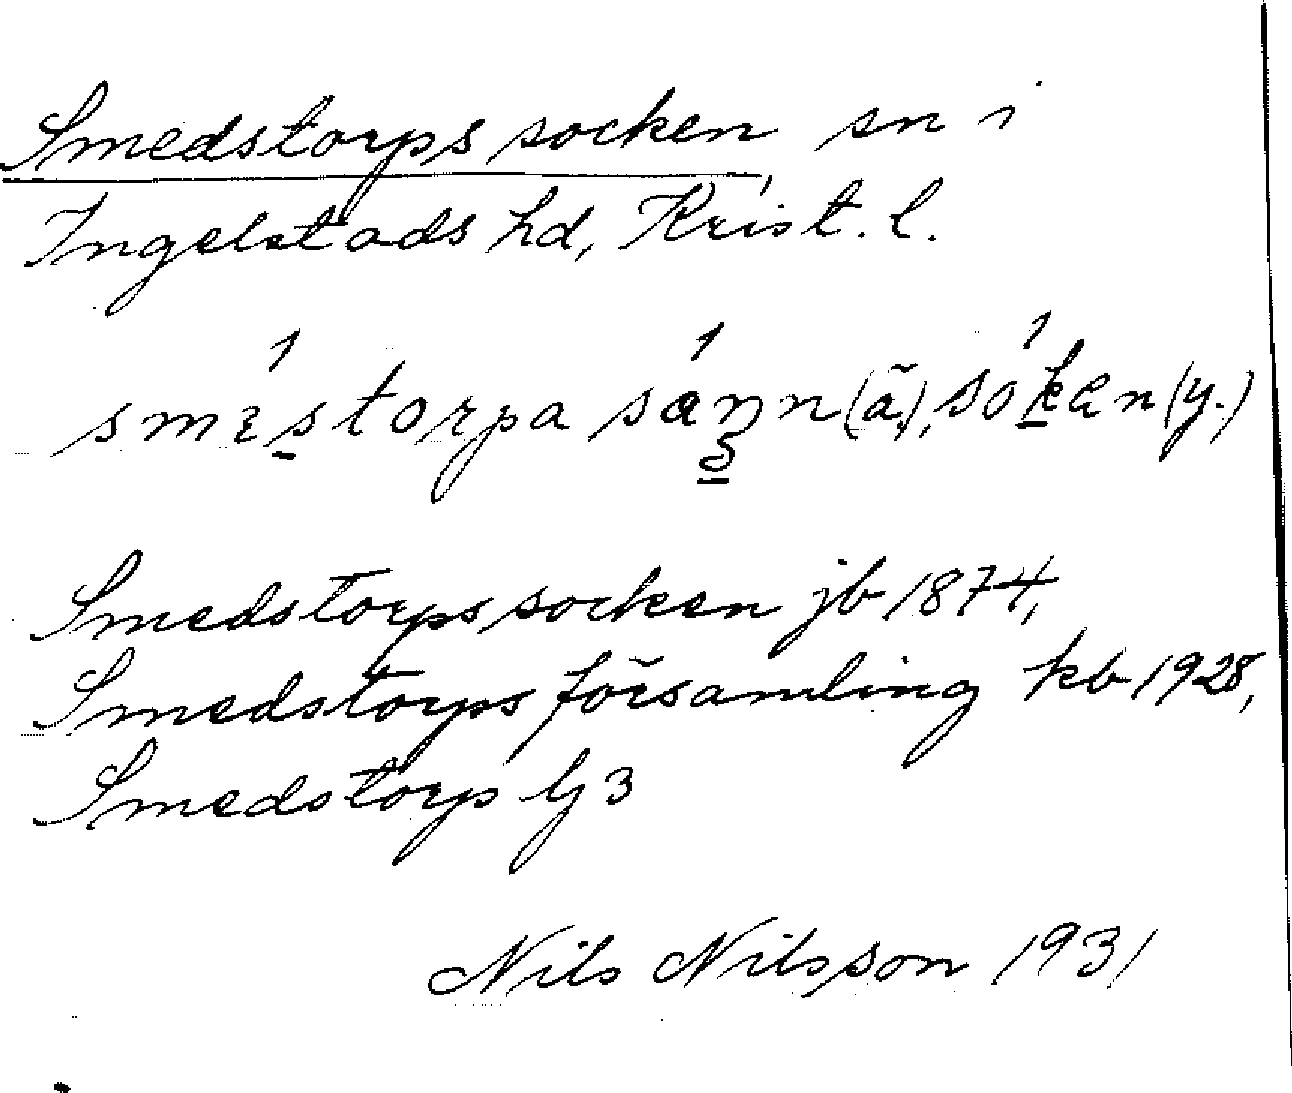 Smedstorps socken, sn i
Ingelstads hd, Krist. l.
smɛstorpa sɑnn (ä.), soken (y.)
Smedstorps socken jb 1874,
Smedstorps församling kb 1928,
Smedstorp Gj 3
Nils Nilsson 1931